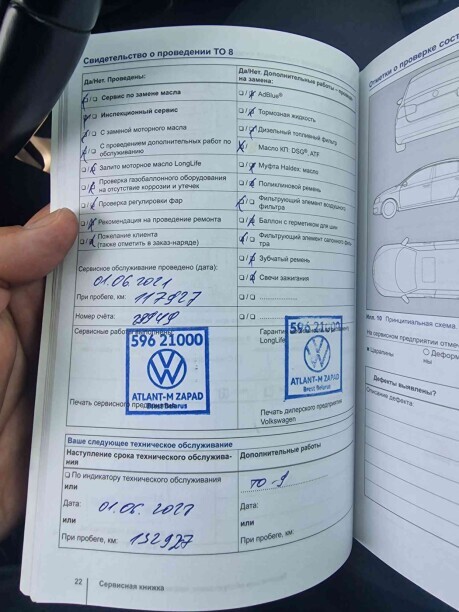 Свидетельство о проведении ТО 8
Да/Нет. Проведены:
Да/Нет. Дополнительные работы –
на замена:
Сервис по замене масла
AdBlue®
Инспекционный сервис
Тормозная жидкость
С заменой моторного масла
Дизельный топливный фильтр
С проведением дополнительных работ по
обслуживанию
Масло КП: DSG®, ATF
Залито моторное масло LongLife
Муфта Haldex: масло
Проверка газобаллонного оборудования
на отсутствие коррозии и утечек
Поликлиновой ремень
Проверка регулировки фар
Фильтрующий элемент воздушного
фильтра
Рекомендация на проведение ремонта
Баллон с герметиком для шин
Пожелание клиента
(также отметить в заказ-наряде)
Фильтрующий элемент салонного фильтра
Зубчатый ремень
Сервисное обслуживание проведено (дата):
Свечи зажигания
01.06.2021
При пробеге, км: 117927
Номер счёта:
Сервисные работы
Гарантия
LongLife
596 21000
ATLANT-M ZAPAD
Brest Belarus
596 21000
ATLANT-M ZAPAD
Brest Belarus
Печать сервисного предприятия
Печать дилерского предприятия
Volkswagen
Ваше следующее техническое обслуживание
Наступление срока технического обслужива-
ния
Дополнительные работы
По индикатору технического обслуживания
ТО-9
или
Дата: 01.06.2022
Дата:
или
или
При пробеге, км: 132927
При пробеге, км:
22 Сервисная книжка
Отметки о проверке сост
Илл. 10 Принципиальная схема.
На сервисном предприятии отмеч
Царапины
Деформ
Дефекты выявлены?
Описание дефекта: